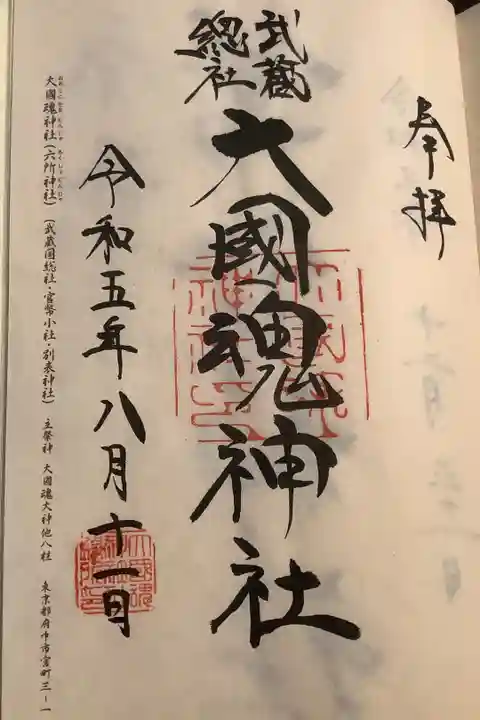 奉拝
武蔵
総社
大國魂神社
令和五年八月十一日
大國魂神社(六所神社) (武蔵国総社・官幣小社・別表神社) 主祭神 大國魂大神他八柱 東京都府中市宮町三ー一